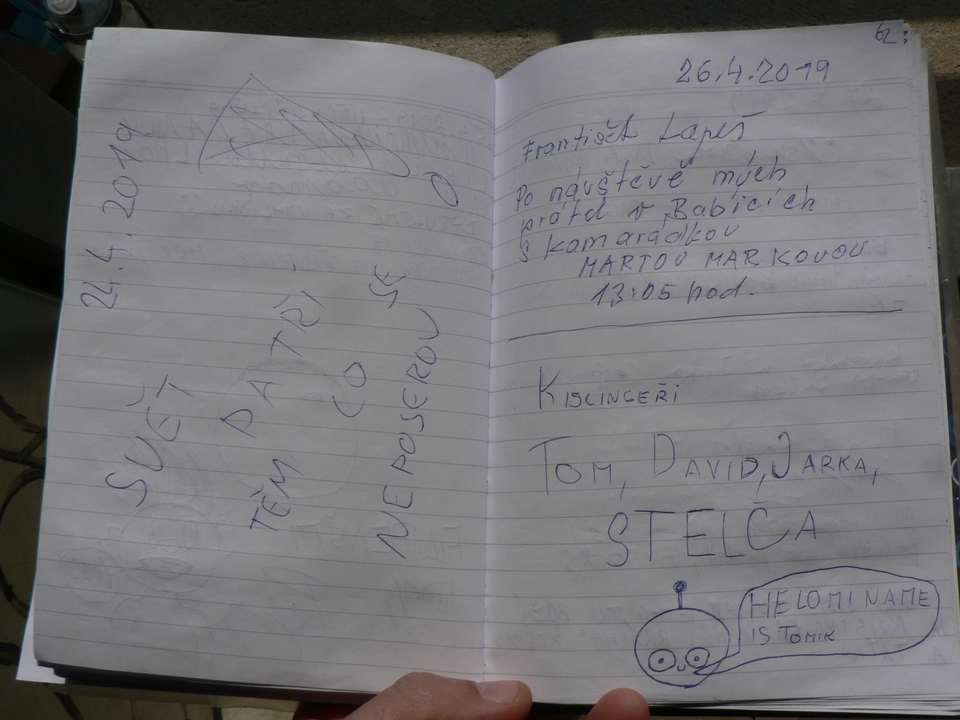 24.4.2019
SVĚT
PATŘÍ
TĚM
CO
SE
NEPOSEROU
62:
26.4.2019
František Lapeš
Po návštěvě mých
přátel v Babicích
s kamarádkou
MARTOU MARKOVOU
13:05 hod.
KISLINGEŘI
TOM, DAVID, JARKA,
STELČA
HELO MI NAME
IS TOMIK